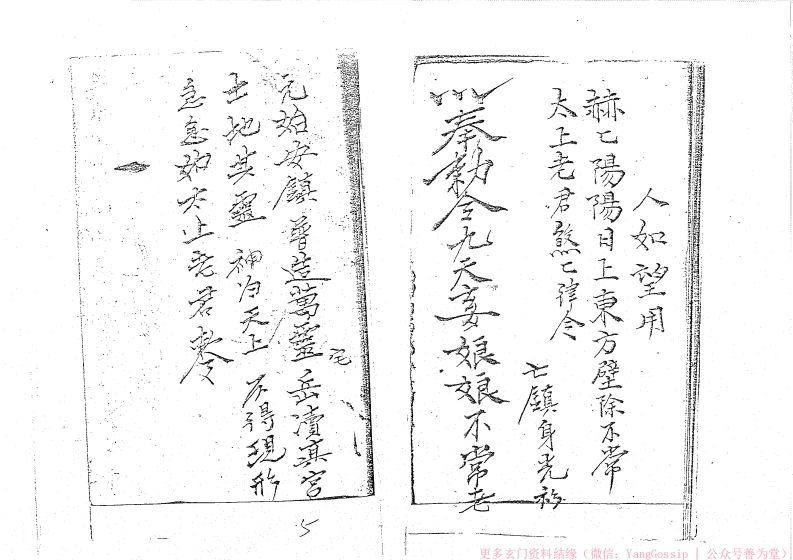 人如望用
赫〻陽陽日上東方壁除不常
太上老君煞〻律令
七鎮身光
奉勅令九天玄娘娘不常老
元始安鎮普造萬靈岳瀆真宮
宅
土地其靈神泊天上不得現形
急急如太上老君
5
更多玄门资料结缘（微信：YangGossip | 公众号善为堂）